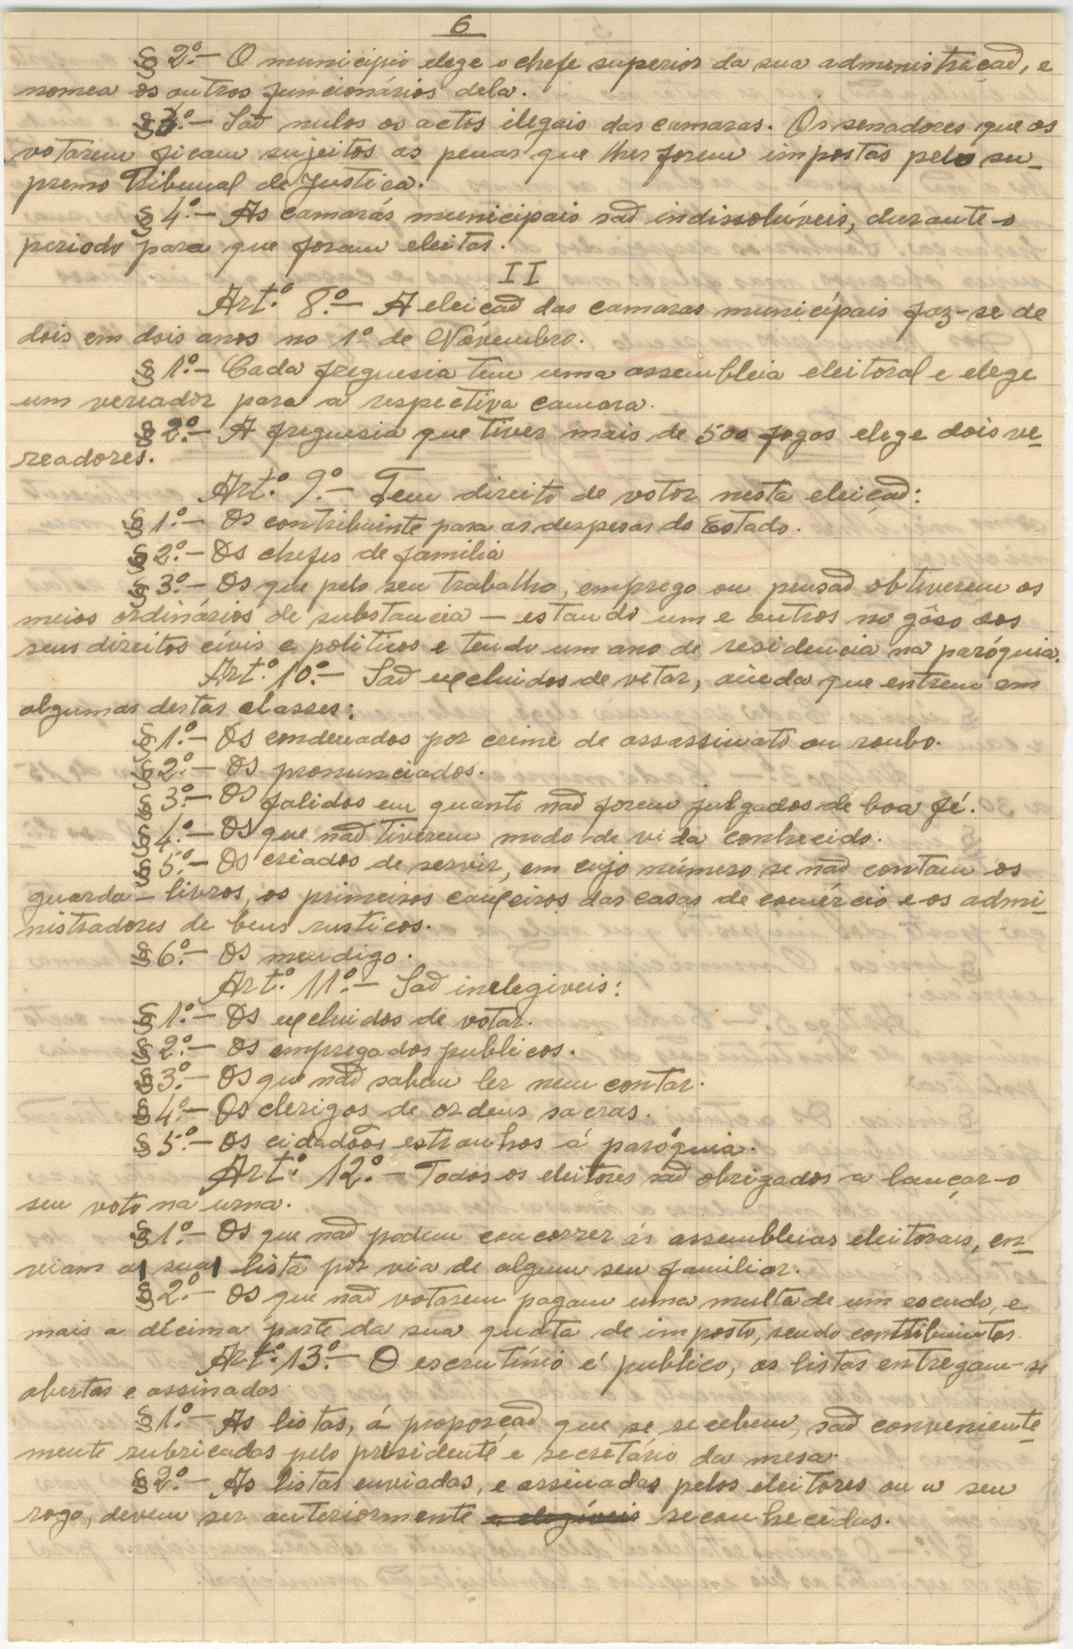 6
§ 2º.- O municipio elege o chefe superior da sua administração, e
nomea os outros funcionários dela.
§ 3º.- São nulos os actos ilegais das camaras. Os senadores que os
votarem ficam sujeitos as penas que lhes forem impostas pelo su-
premo Tribunal de Justiça.
§ 4º.- As camarás municipais são indissolúveis, durante o
periodo para que foram eleitas.
II
Artº. 8º.- A eleição das camaras municípais faz-se de
dois em dois anos no 1º de Novembro.
§ 1º.- Cada freguesia tem uma assembleia eleitoral e elege
um vereador para a respectiva camara.
§ 2º.- A freguesia que tiver mais de 500 fogos elege dois ve-
readores.
Artº. 9º.- Tem direito de votar nesta eleição:
§ 1º.- Os contribuinte para as despesas do Estado.
§ 2º.- Os chefes de familia
§ 3º.- Os que pelo seu trabalho, emprego ou pensão obtiverem os
meios ordinários de substancia - estando um e outros no gôso dos
seus direitos civis e politicos e tendo um ano de residencia na paróquia.
Artº. 10º.- São excluidos de votar, ainda que entrem em
algumas destas classes:
§ 1º.- Os condenados por crime de assassinato ou roubo.
§ 2º.- Os pronunciados.
§ 3º.- Os falidos em quanto não forem julgados de boa fé.
§ 4º.- Os que não tiverem modo de vida conhecido.
§ 5º.- Os criados de servir, em cujo número se não contam os
guarda-livros, os primeiros caixeiros das casas de comércio e os admi-
nistradores de bens rusticos.
§ 6º.- Os mendigo.
Artº. 11º.- São inelegiveis:
§ 1º.- Os excluidos de votar.
§ 2º.- Os empregados publicos.
§ 3º.- Os que não sabem ler nem contar.
§ 4º.- Os clerigos de ordens sacras.
§ 5º.- Os cidadãos estranhos á paróquia.
Artº. 12º.- Todos os eleitores são obrigados a lançar o
seu voto na urna.
§ 1º.- Os que não podem concorrer ás assembleias eleitorais, en-
viam a sua lista por via de algum seu familiar.
§ 2º.- Os que não votarem pagam uma multa de um escudo, e
mais a décima parte da sua quota de imposto, sendo contribuintes
Artº. 13º.- O escrutínio é publico, as listas entregam-se
abertas e assinadas
§ 1º.- As listas, á proporção que se recebem, são conveniente-
mente rubricadas pelo presidente e secretário da mesa.
§ 2º.- As listas enviadas, e assinadas pelos eleitores ou a seu
rogo, devem ser anteriormente reconhecidas.